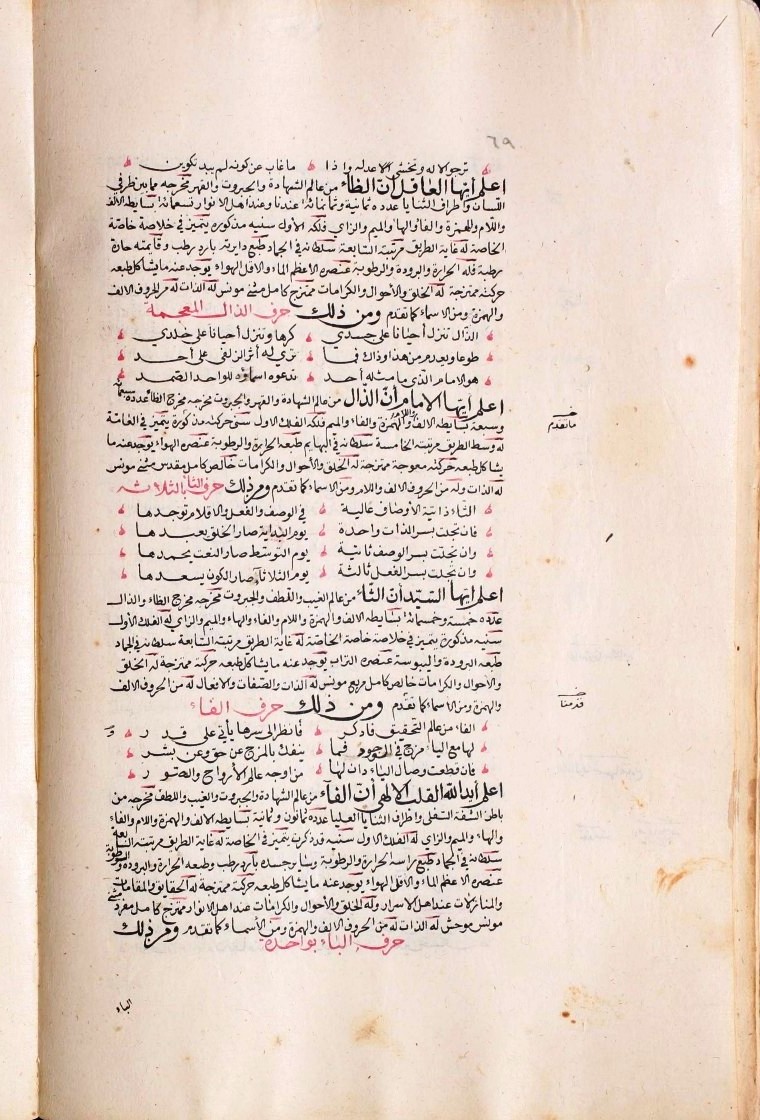 ٦٩
ترجو الاله وتخشى الاعدله واذا ما غاب عن كونه لم يبد تكوين
اعلم أيها العاقل أن الظاء من عالم الشهادة والجبروت والقهر مخرجه مما بين طرفي
اللسان واطراف الثنايا عدده ثمانية وثمانمائة عندنا وعند اهل الانوار تسعمائة بسايطه الالف
واللام والهمزة والفا والها والميم والزاي فلكه الأول سنيه مذكورة يتميز في خلاصة خاصة
الخاصة له غاية الطريق مرتبته السابعة سلطانه في الجماد طبع دايرته بارد رطب وقايمته حارة
رطبة فله الحرارة والبرودة والرطوبة عنصره الأعظم الماء والاقل الهواء يوجد عنه ما يشاكل طبعه
حركته ممتزجة له الخلق والأحوال والكرامات ممتزج كامل مثنى مونس له الذات له من الحروف الالف
والهمزة ومن الاسماء كما تقدم ومن ذلك حرف الذال المعجمة
الذال تنزل أحيانا على جسدي كرها وتنزل أحيانا على خلدي
طوعا ويعدم من هذا وذاك فما ترى له أثر الزلفى على أحد
هو الامام الذي ما مثله أحد تدعوه اسماؤه للواحد الصمد
اعلم أيها الامام أن الذال من عالم الشهادة والقهر والجبروت مخرجه مخرج الظا عدده سبعمائة
وسبعة بسايطه الالف واللام والهمزة والفاء والميم فلكه الفلك الاول سنى حركته مذكورة يتميز في العامة
له وسط الطريق مرتبته الخامسة سلطانه في البهايم طبعه الحرارة والرطوبة عنصره الهواء يوجد عنه ما
يشاكل طبعه حركته معوجة ممتزجة له الخلق والأحوال والكرامات خالص كامل مقدس مثنى مونس
له الذات وله من الحروف الالف واللام ومن الاسماء كما تقدم ومن ذلك حرف الثا بالثلاثة
الثاء ذاتية الأوصاف عالية في الوصف والفعل والاقلام توجدها
فان تجلت بسر الذات واحدة يوم البداية صار الخلق يعبدها
وان تجلت بسر الوصف ثانية يوم التوسط صار النعت يحمدها
وان تجلت بسر الفعل ثالثة يوم الثلاثاء صار الكون يسعدها
اعلم ايها السيد أن الثاء من عالم الغيب واللطف والجبروت مخرجه مخرج الظاء والذال
عدده خمسة وخمسمائة بسايطه الالف والهمزة واللام والفاء والهاء والميم والزاي له الفلك الأول
سنيه مذكورة يتميز في خلاصة خاصة الخاصة له غاية الطريق مرتبته السابعة سلطانه في الجماد
طبعه البرودة واليبوسة عنصره التراب يوجد عنه ما يشاكل طبعه حركته ممتزجة له الخلق
والأحوال والكرامات خالص كامل مربع مونس له الذات والصفات والافعال له من الحروف الالف
والهمزة ومن الاسماء كما تقدم ومن ذلك حرف الفاء
الفاء من عالم التحقيق فادكر فانظر الى سرها يأتي على قدر
لها مع الياء مزج في الوجود فما ينفك بالمزج عن حق وعن بشر
فان قطعت وصال الياء دان لها من اوجه عالم الأرواح والصور
اعلم أيد الله القلب الالهي أن الفاء من عالم الشهادة والجبروت والغيب واللطف مخرجه من
باطن الشفة السفلى واطراف الثنايا العليا عدده ثمانون وثمانية بسايطه الالف والهمزة واللام والفاء
والهاء والميم والزاي له الفلك الاول سنيه قد ذكرت يتميز في الخاصة له غاية الطريق مرتبته السابعة
سلطانه في الجماد طبع راسه الحرارة والرطوبة وساير جسده بارد رطب وطبعه الحرارة والبرودة والرطوبة
عنصره الاعظم الماء والاقل الهواء يوجد عنه ما يشاكل طبعه حركته ممتزجة له الحقايق والمقامات
والمنازلات عند اهل الاسرار وله الخلق والأحوال والكرامات عند اهل الانوار ممتزج كامل مفرد مثنى
مونس موحش له الذات له من الحروف الالف والهمزة ومن الأسماء كما تقدم ومن ذلك
حرف الباء بواحدة
الباء
ما تقدم
قدمنا